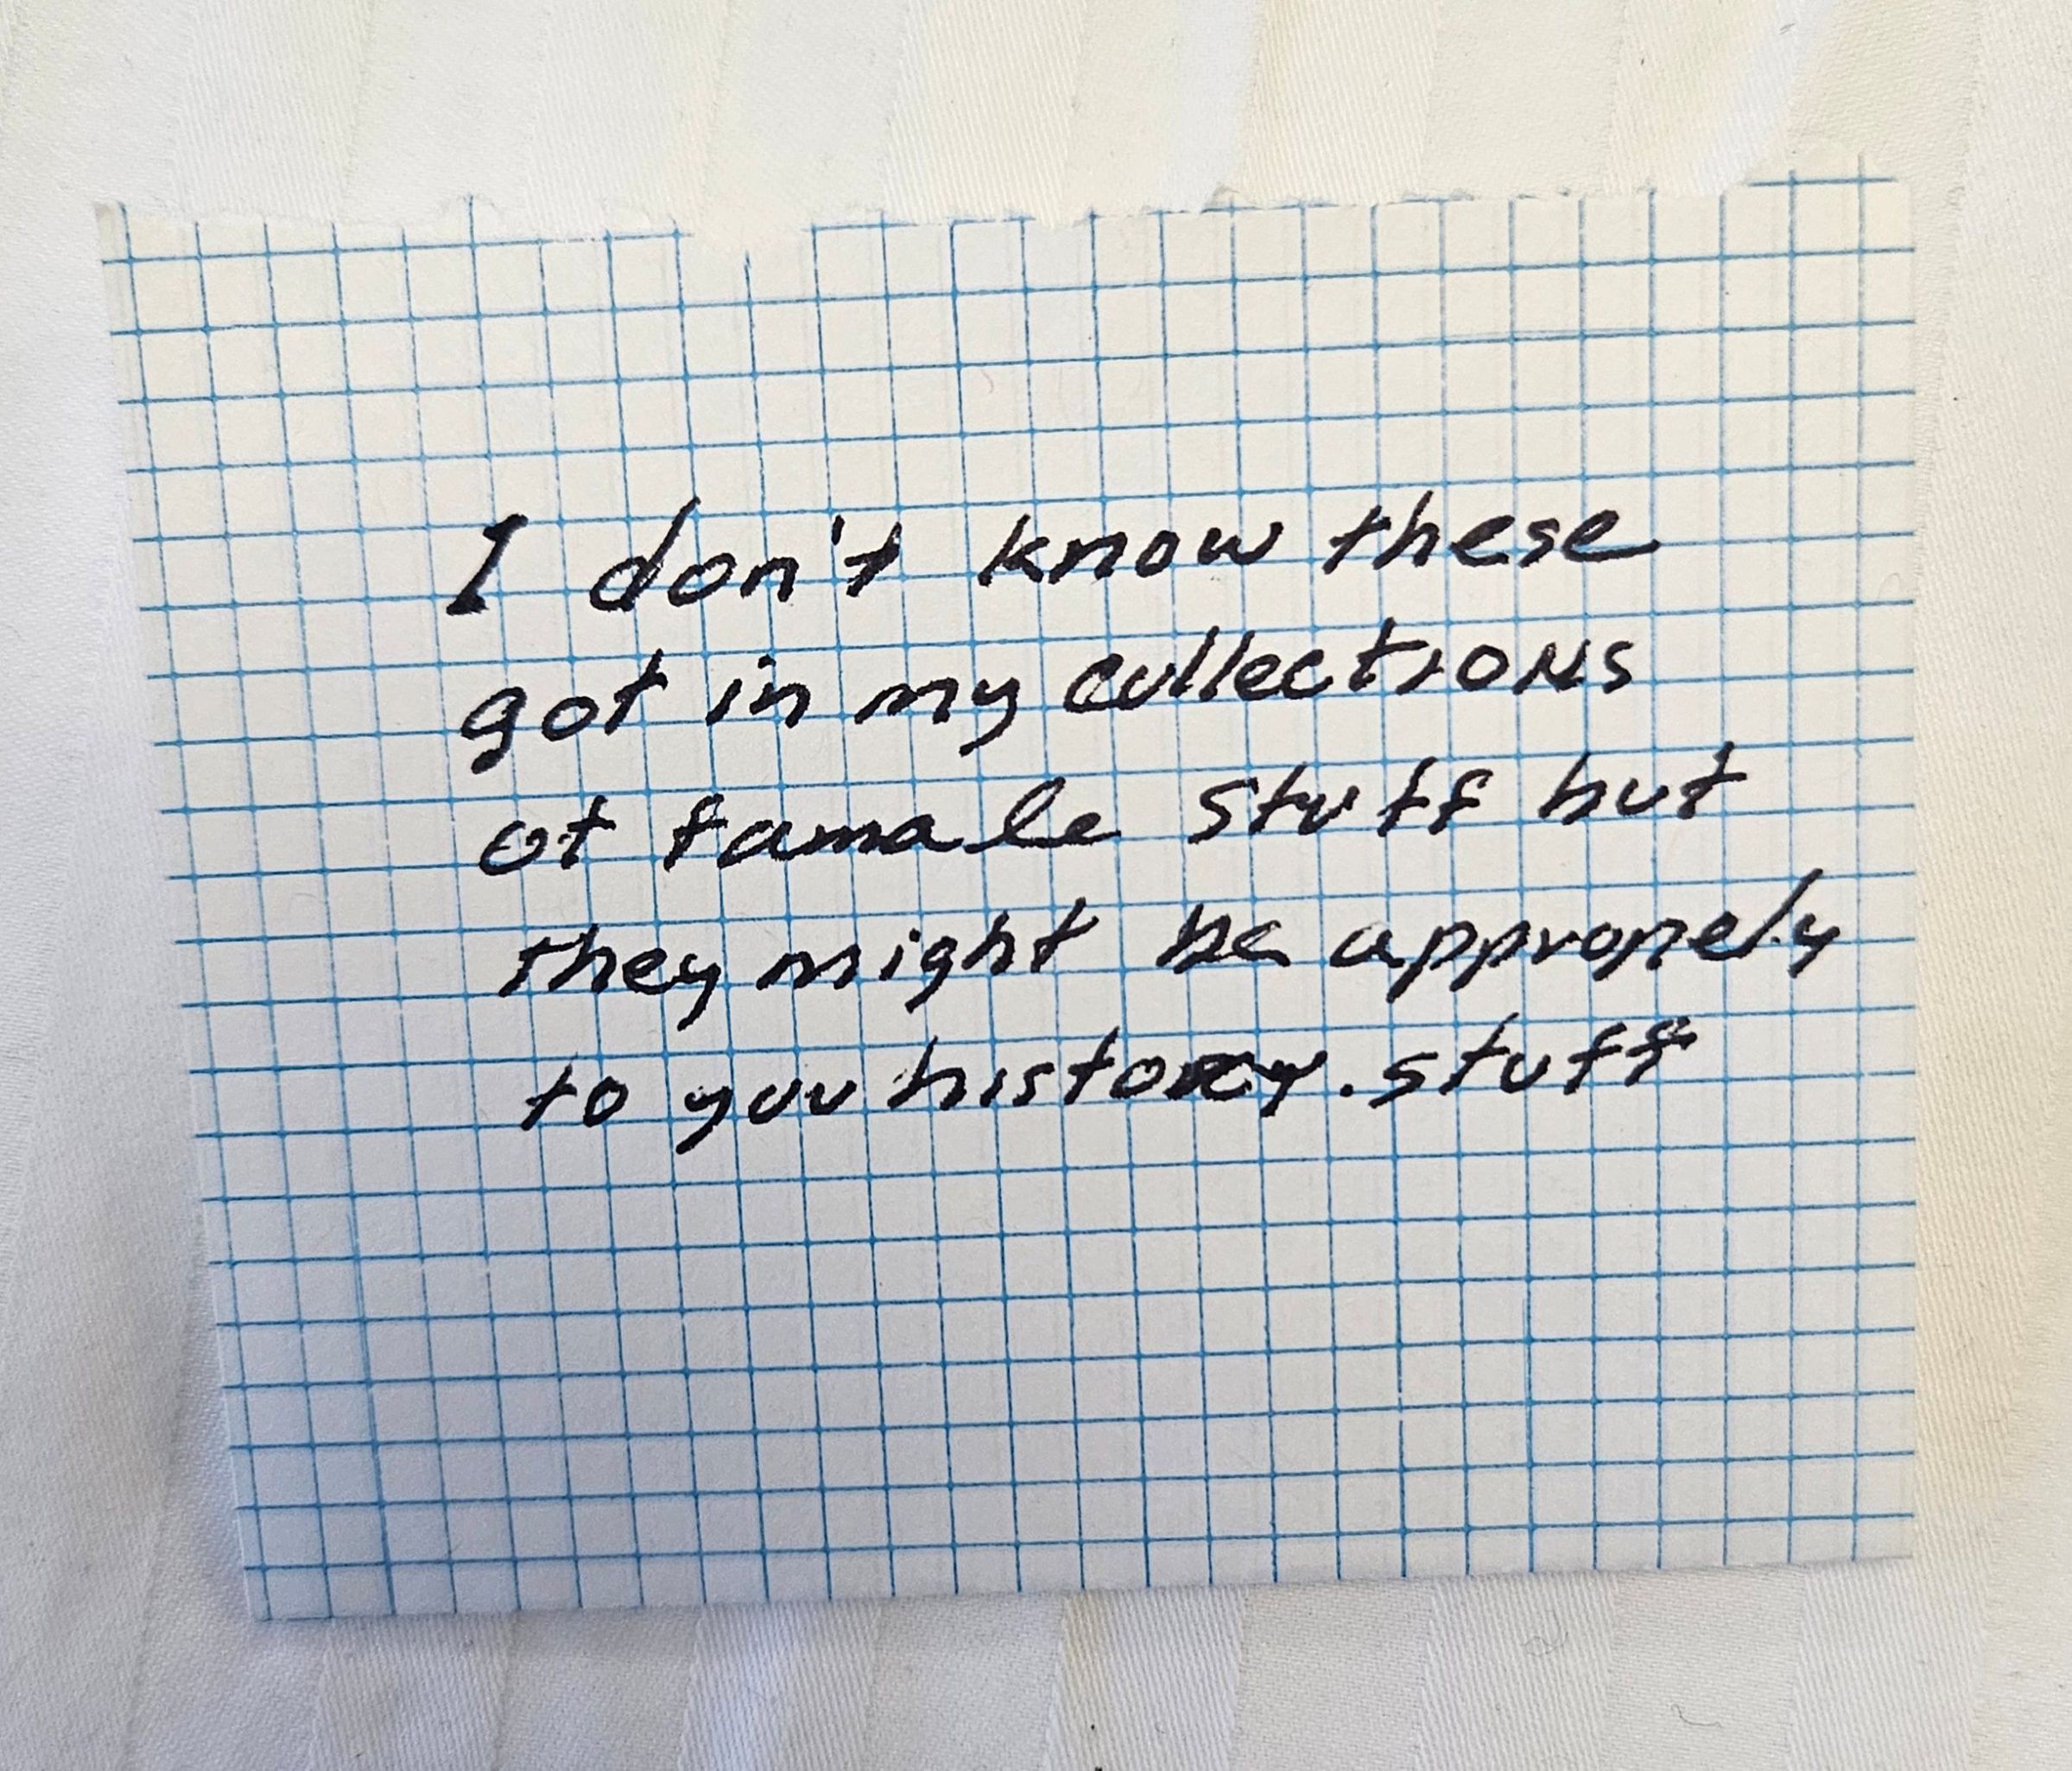 I don't know these
got in my collections
of famale stuff but
they might be appropely
to you history. stuff